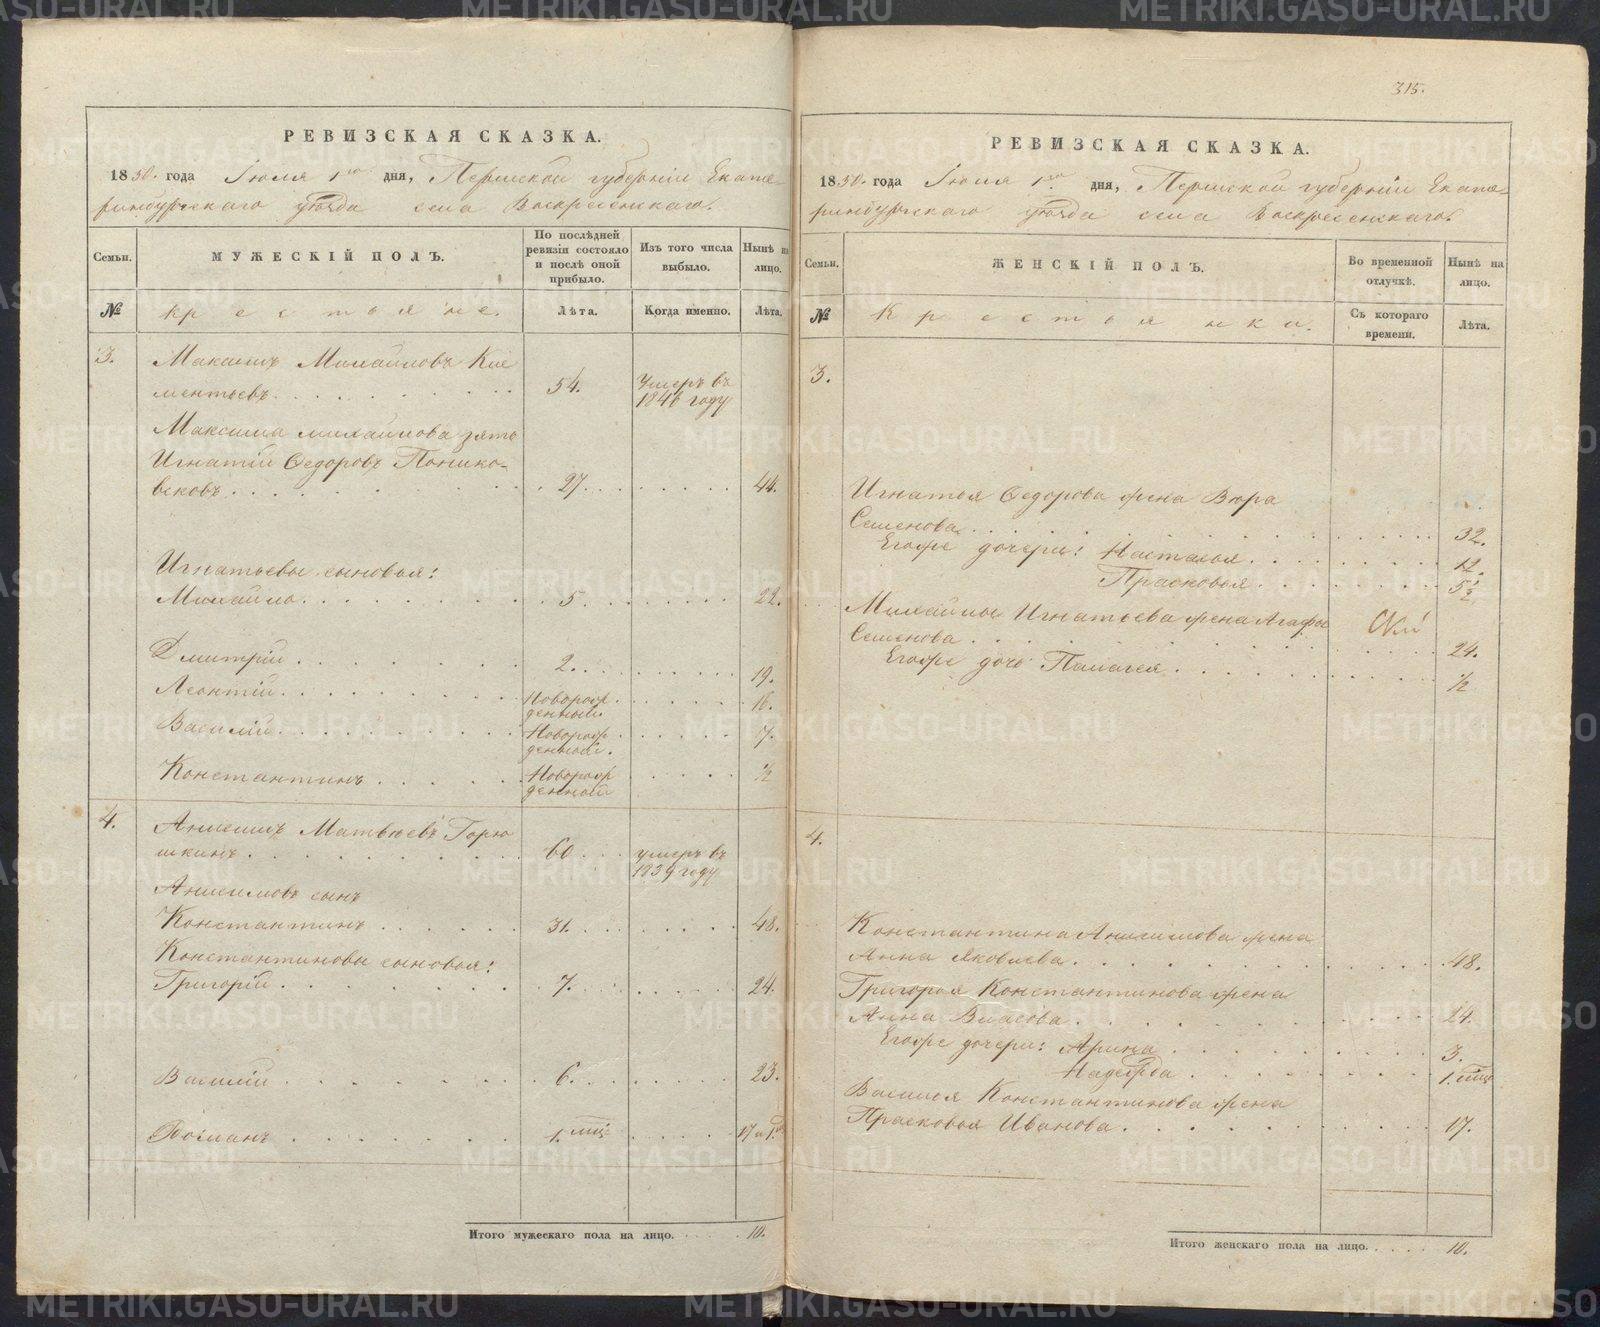 РЕВИЗСКАЯ СКАЗКА.
1850. года Іюля 1го дня, Пермской губерніи Екате-
ринбургскаго уѣзда села Воскресенскаго.
Семьи.
МУЖЕСКІЙ ПОЛЪ.
По послѣдней
ревизіи состояло
и послѣ оной
прибыло.
Изъ того числа
выбыло.
Нынѣ на
лицо.
№
крестьяне.
Лѣта.
Когда именно.
Лѣта.
3.
Максимъ Михайловъ Кле
ментьевъ
54.
умеръ въ
1846 году
Максима михайлова зять
Игнатій Ѳедоровъ Понико-
всковъ
27.
44.
Игнатьевы сыновья:
Михайло
5.
22.
Дмитрій
2.
19.
Леонтій
Новорож
денный.
16.
Василій
Новорож
денный.
7.
Константинъ
Новорож
денный
½
4.
Анисимъ Матвѣевъ Горю
шкинъ
60
умеръ въ
1839 году
Анисимовъ сынъ
Константинъ
31.
48.
Константиновы сыновья:
Григорій
7.
24.
Василій
6.
23.
Романъ
1. мцъ
17 и 1.
Итого мужескаго пола на лицо.
10.
315.
РЕВИЗСКАЯ СКАЗКА.
1850. года Іюля 1го дня, Пермской губерніи Екате-
ринбургскаго уѣзда села Воскресенскаго.
Семьи.
ЖЕНСКІЙ ПОЛЪ.
Во временной
отлучкѣ.
Нынѣ на
лицо.
№
Крестьянки.
Съ котораго
времени.
Лѣта.
3.
Игнатья Ѳедорова жена Вѣра
Семенова
32.
Егоже дочери: Настасья
12.
Прасковья
5½
Михайлы Игнатьева жена Агафья
Семенова
24.
Егоже дочь Палагея
½
4.
Константина Анисимова жена
Анна Яковлева
48.
Григорья Константинова жена
Анна Власова
24.
Егоже дочери: Арина
3.
Надежда
1. мцъ
Василья Константинова жена
Прасковья Иванова
17.
Итого женскаго пола на лицо.
10.
METRIKI.GASO-URAL.RU